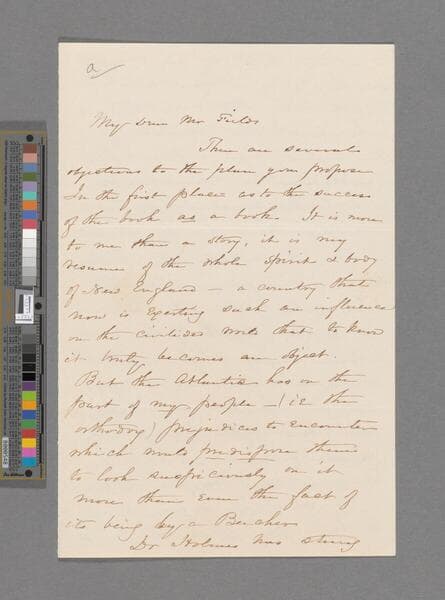 a
My dear Mr Fields
There are several
objections to the plan you propose
In the first place as to the success
of the book as a book. It is more
to me than a story, it is my
resume of the whole spirit & body
of New England – a country that
now is exerting such an influence
on the civilized world that to know
it truly becomes an object.
But the Atlantic has on the
part of my people – (i e the
orthodox) prejudices to encounter
which would predispose them
to look suspiciously on it
more than even the fact of
its being by a Beecher
Dr Holmes has stung